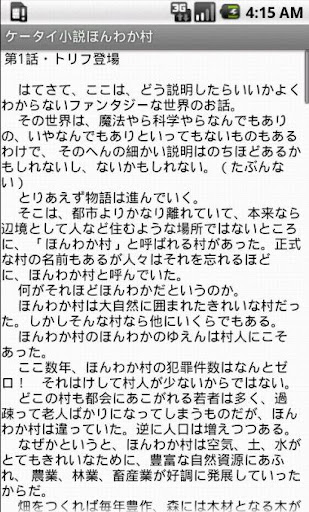 3G
4:15 AM
ケータイ小説ほんわか村
第1話・トリフ登場
はてさて、ここは、どう説明したらいいかよく
わからないファンタジーな世界のお話。
その世界は、魔法やら科学やらなんでもあり
の、いやなんでもありといってもないものもある
わけで、そのへんの細かい説明はのちほどあるか
もしれないし、ないかもしれない。（たぶんな
い）
とりあえず物語は進んでいく。
そこは、都市よりかなり離れていて、本来なら
辺境として人など住むような場所ではないところ
に、「ほんわか村」と呼ばれる村があった。正式
な村の名前もあるが人々はそれを忘れるほど
に、ほんわか村と呼んでいた。
何がそれほどほんわかだというのか。
ほんわか村は大自然に囲まれたきれいな村だっ
た。しかしそんな村なら他にいくらでもある。
ほんわか村のほんわかのゆえんは村人にこそ
あった。
ここ数年、ほんわか村の犯罪件数はなんとゼ
ロ！　それはけして村人が少ないからではない。
どこの村も都会にあこがれる若者は多く、過
疎って老人ばかりになってしまうものだが、ほん
わか村は違っていた。逆に人口は増えつつある。
なぜかというと、ほんわか村は空気、土、水が
とてもきれいなために、豊富な自然資源にあふ
れ、農業、林業、畜産業が好調に発展していった
からだ。
畑をつくれば毎年豊作、森には木材となる木が